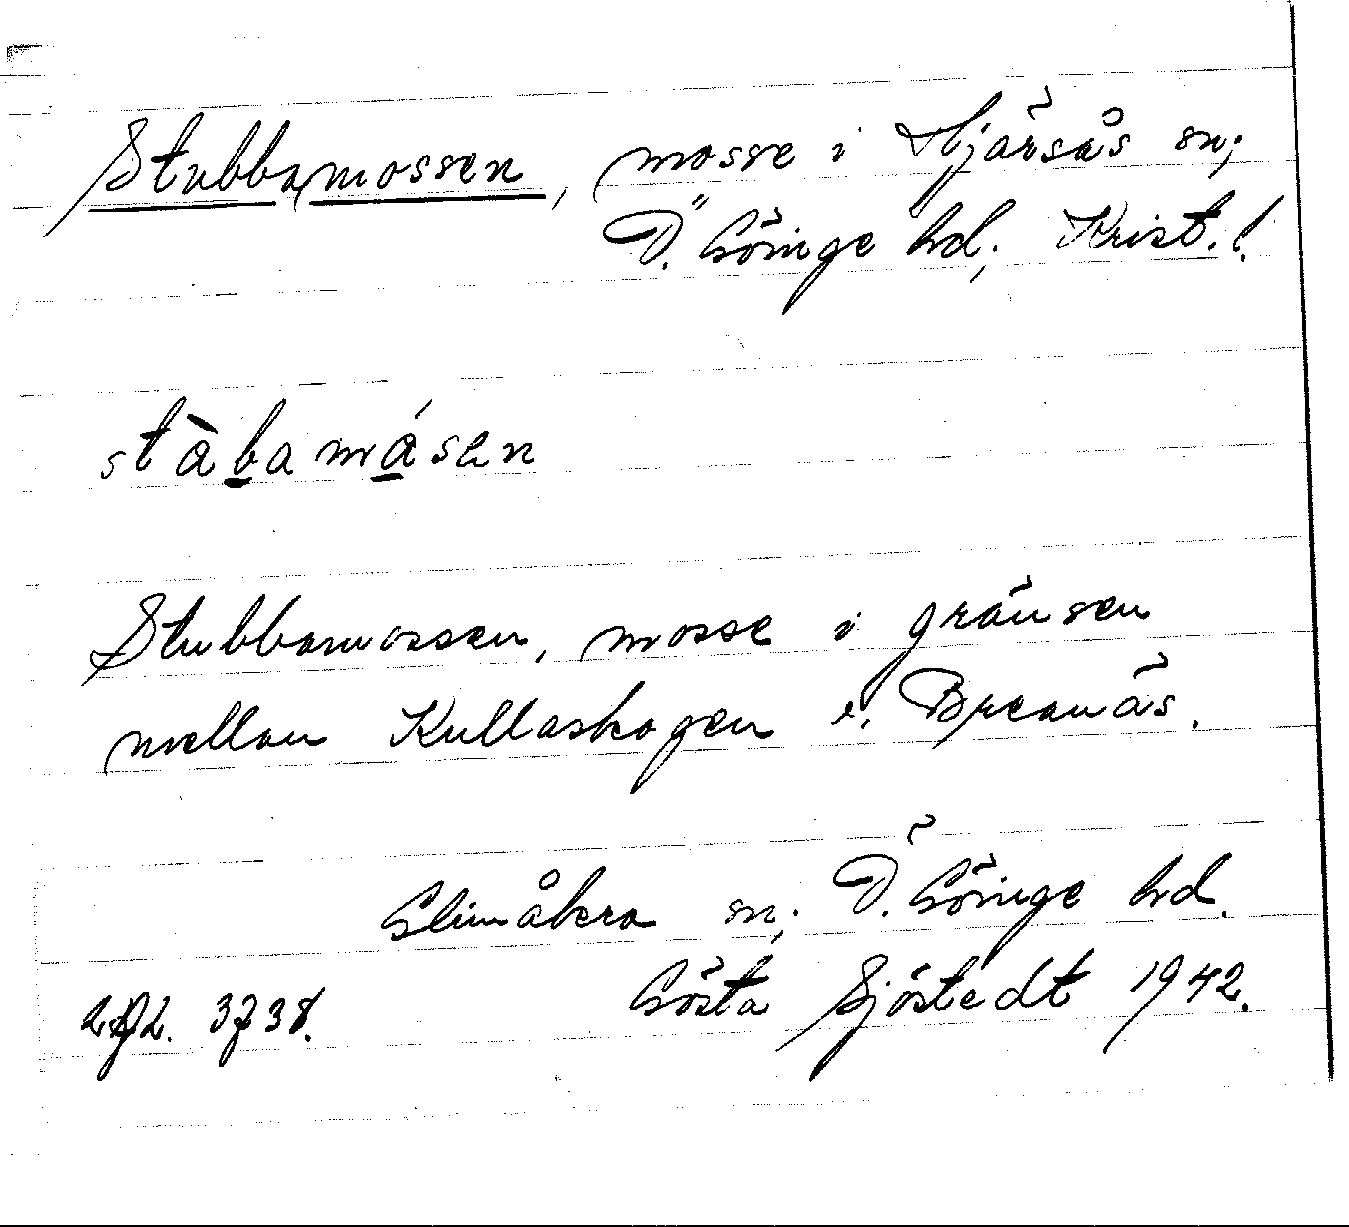 Stubbamossen, mosse i Hjärsås sn;
Ö. Göinge hd; Krist. l.
stàbamásen
Stubbamossen, mosse i gränsen
mellan Kullaskogen o. Breanäs.
Glimåkra sn; Ö. Göinge hd.
3738. Gösta Sjöstedt 1942.